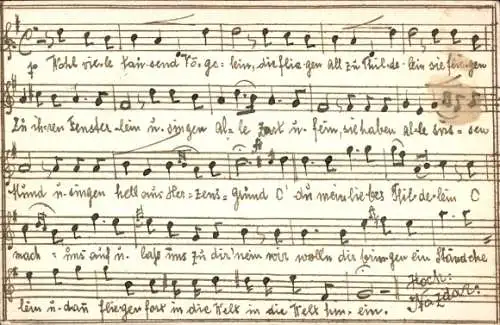 Wohl vierle tausend Vö-ge-lein, die flie-gen all zu Thil-de-lein sie fliegen
Zu ihren Fenster-lein u. singen al-le zart u. fein, sie haben al-le süs-sen
Mund u. singen hell aus Her-zens-grund O du mein lie-bes Thil-de-lein O
mach-uns auf u. laß uns zu dir 'nein wir wolln dir bringen ein Ständche
lein u. dan fliegen fort in die Welt in die Welt hin-ein.
Hoch:
Nazdar: